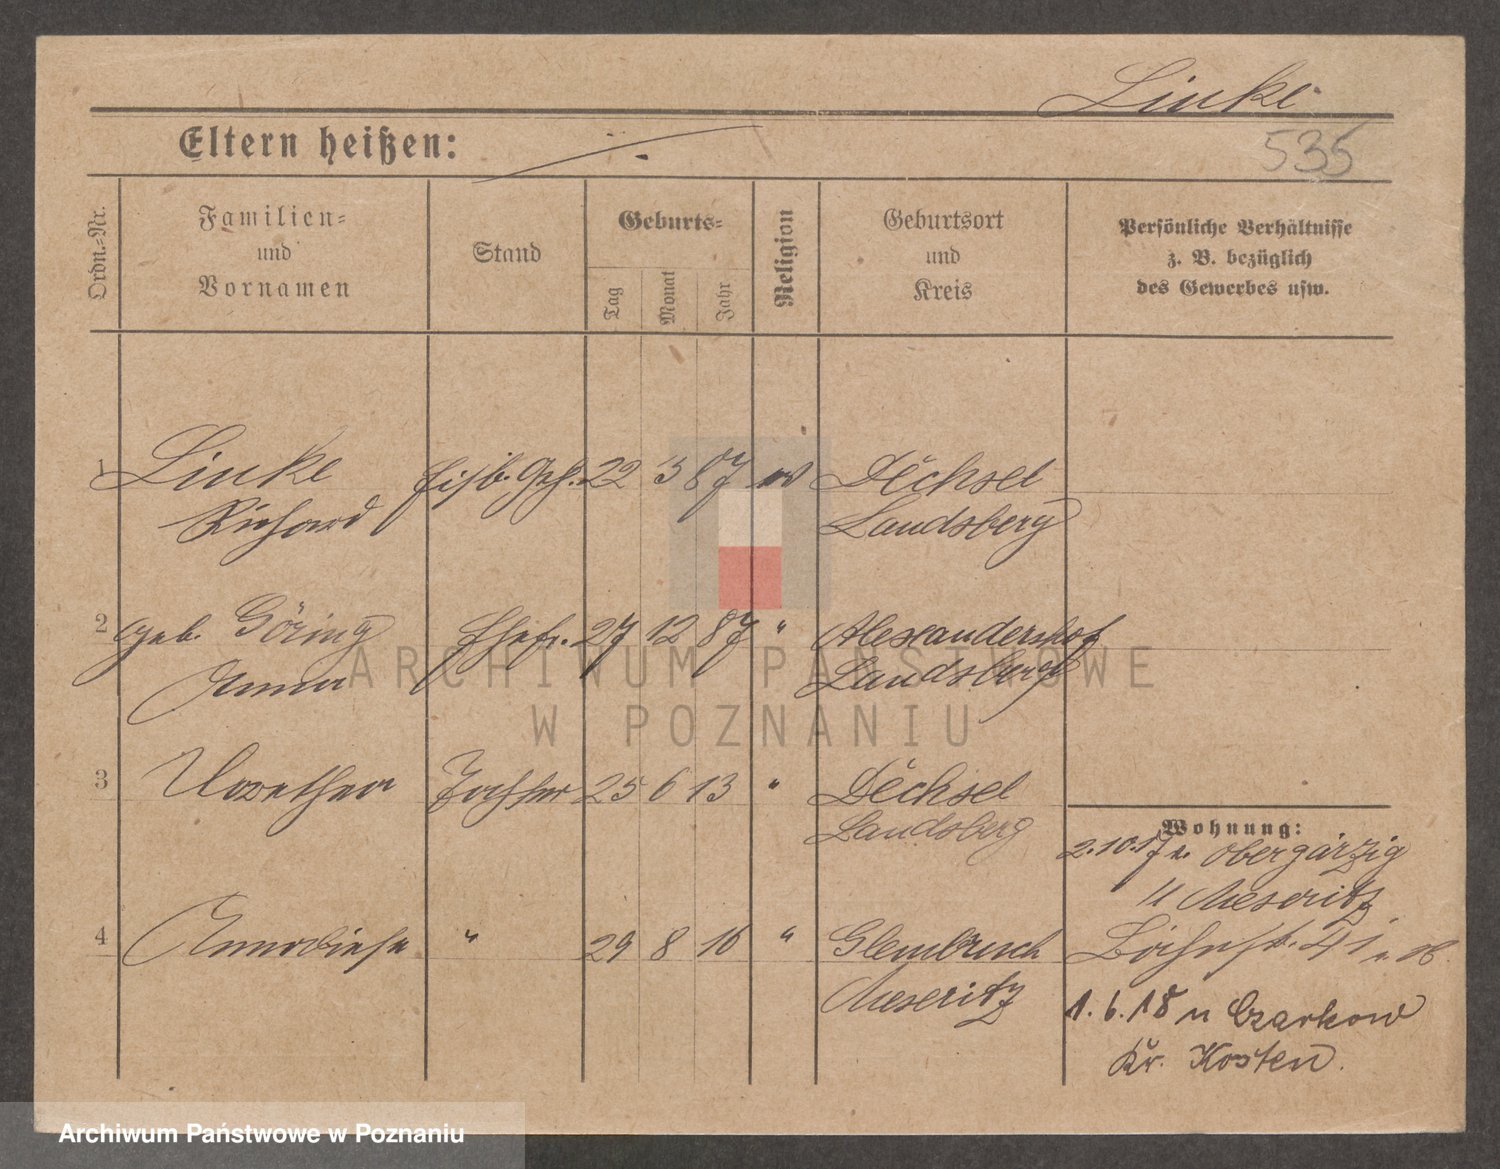 Linke
535
Eltern heißen:
Ordn.-Nr.
Familien-
und
Vornamen
Stand
Geburts-
Tag
Monat
Jahr
Religion
Geburtsort
und
Kreis
Persönliche Verhältnisse
z. B. bezüglich
des Gewerbes usw.
1 Linke 22 5 87 ev Dechsel
Richard Landsberg
2 geb. Göring Ehefr. 27 12 87 " Alexandershof
Anna Landsberg
3 Dorothea Tochter 25 6 13 " Dechsel
Landsberg
4 Anneliese " 29 8 16 " Glembusch
Meseritz
Wohnung:
2.10.17 v. Obergörzig
Meseritz
41
1.6.18 n Czarkow
Kr. Kosten.
ARCHIWUM PAŃSTWOWE
W POZNANIU
Archiwum Państwowe w Poznaniu